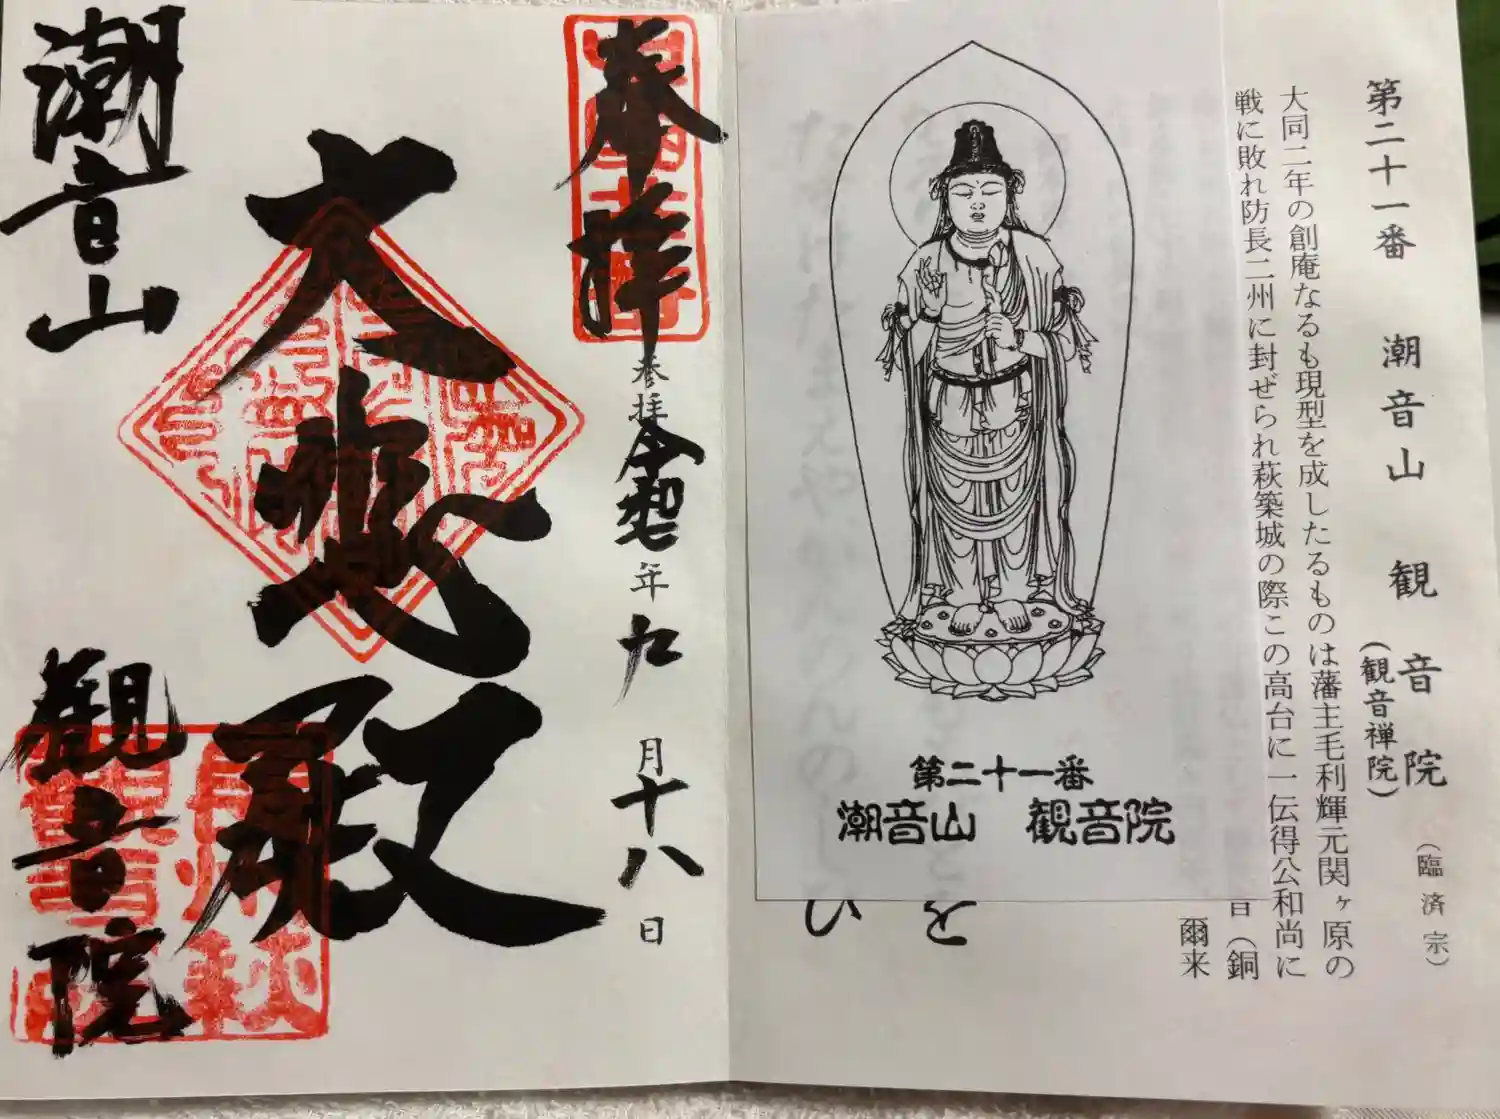 第二十一番 潮音山 観音院 (臨済宗)
(観音禅院)
大同二年の創庵なるも現型を成したるものは藩主毛利輝元関ヶ原の
戦に敗れ防長二州に封ぜられ萩築城の際この高台に一伝得公和尚に
音(銅
爾来
第二十一番
潮音山 観音院
奉拝
参拝令和七年九月十八日
大悲殿
潮音山
観音院